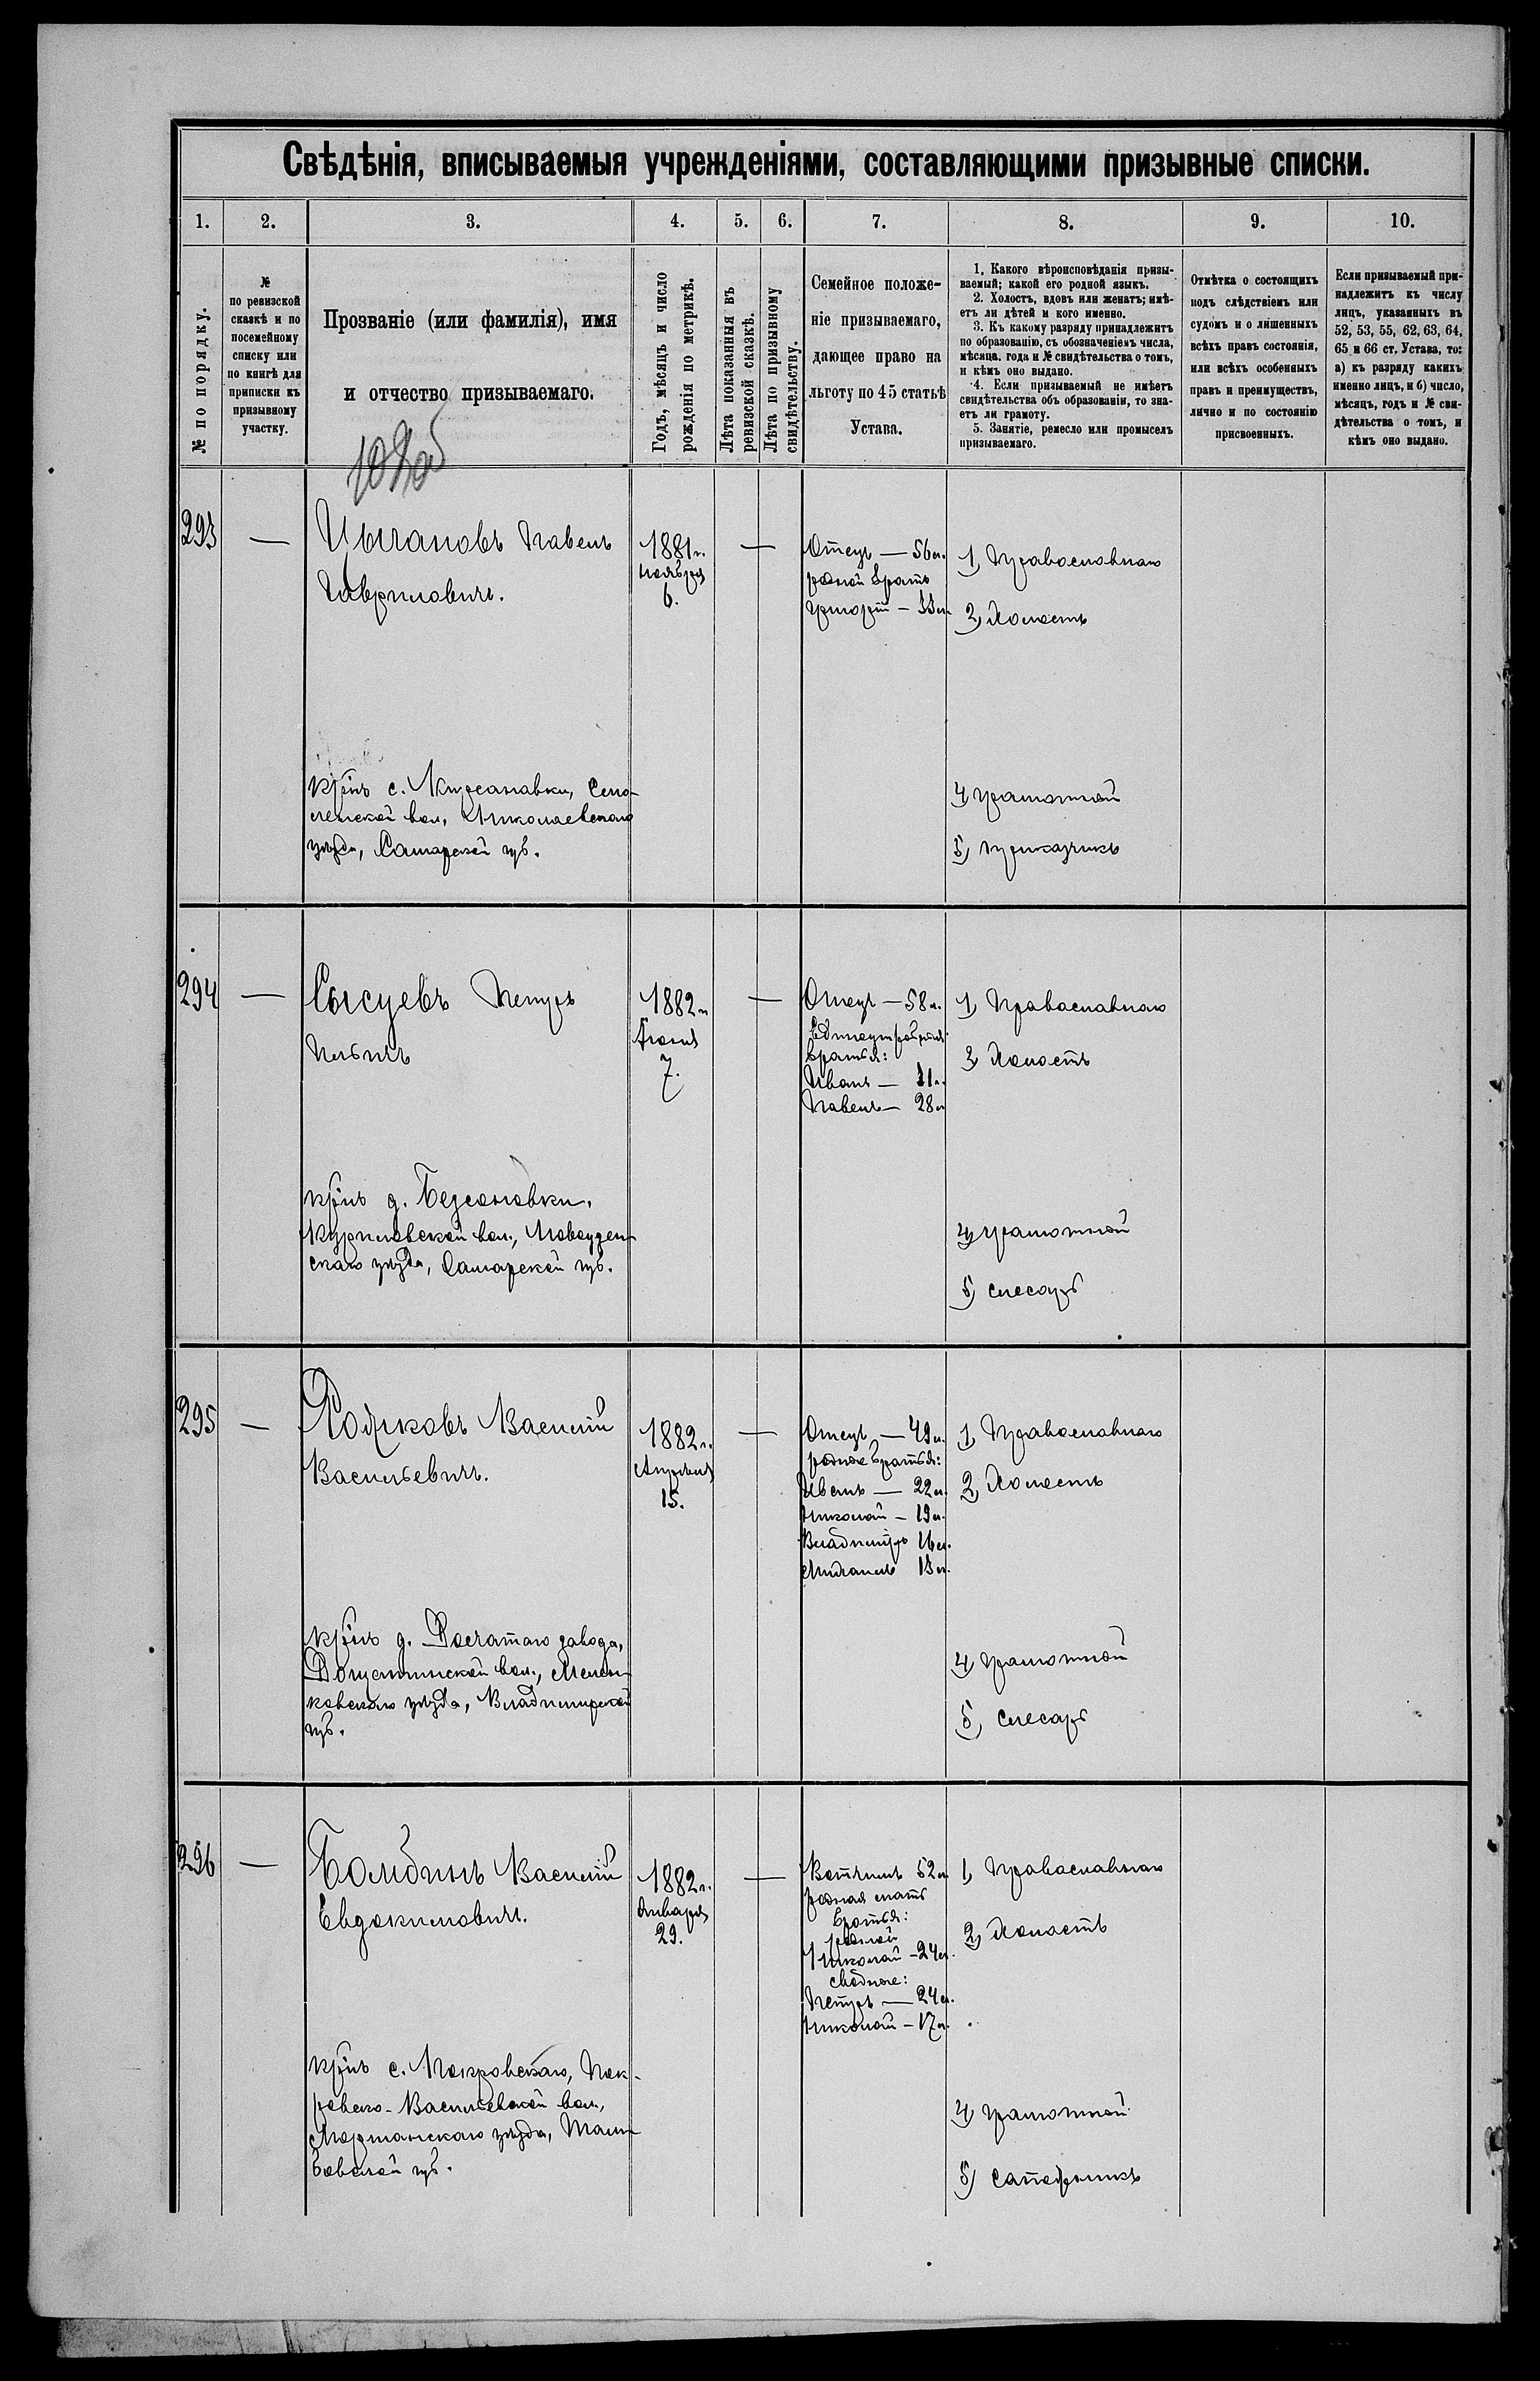 Свѣдѣнія, вписываемыя учрежденіями, составляющими призывные списки.
1. 2. 3. 4. 5. 6. 7. 8. 9. 10.
№ по порядку.
№
по ревизской
сказкѣ и по
посемейному
списку или
по книгѣ для
приписки къ
призывному
участку.
Прозваніе (или фамилія), имя
и отчество призываемаго.
Годъ, мѣсяцъ и число
рожденія по метрикѣ.
Лѣта показанныя въ
ревизской сказкѣ.
Лѣта по призывному
свидѣтельству.
Семейное положе-
ніе призываемаго,
дающее право на
льготу по 45 статьѣ
Устава.
1. Какого вѣроисповѣданія призы-
ваемый; какой его родной языкъ.
2. Холостъ, вдовъ или женатъ; имѣ-
етъ ли дѣтей и кого именно.
3. Къ какому разряду принадлежитъ
по образованію, съ обозначеніемъ числа,
мѣсяца, года и № свидѣтельства о томъ,
и кѣмъ оно выдано.
4. Если призываемый не имѣетъ
свидѣтельства объ образованіи, то зна-
етъ ли грамоту.
5. Занятіе, ремесло или промыселъ
призываемаго.
Отмѣтка о состоящихъ
подъ слѣдствіемъ или
судомъ и о лишенныхъ
всѣхъ правъ состоянія,
или всѣхъ особенныхъ
правъ и преимуществъ,
лично и по состоянію
присвоенныхъ.
Если призываемый при-
надлежитъ къ числу
лицъ, указанныхъ въ
52, 53, 55, 62, 63, 64,
65 и 66 ст. Устава, то:
а) къ разряду какихъ
именно лицъ, и б) число,
мѣсяцъ, годъ и № сви-
дѣтельства о томъ, и
кѣмъ оно выдано.
293 — Цыгановъ Павелъ
Гавриловичъ.
1881 г.
ноября
6.
—
Отецъ — 56 л.
родной братъ
Григорій — 33 л.
1) Православнаго
2) Холостъ
крнъ с. Кирсановки,
вол., Николаевскаго
уѣзда, Самарской губ.
4) грамотной
5) приказчикъ
294 — Сысуевъ Петръ
Ильичъ
1882 г.
Іюня
7.
—
Отецъ — 58 л.
братья:
Иванъ — 31 л.
Павелъ — 28 л.
1) Православнаго
2) Холостъ
крнъ д. Безсоновки,
Куриловской вол., Новоузен-
скаго уѣзда, Самарской губ.
4) грамотной
5) слесарь
295 — Рожковъ Василій
Васильевичъ.
1882 г.
Апрѣля
15.
—
Отецъ — 49 л.
родные братья:
Иванъ — 22 л.
Николай — 19 л.
Владиміръ 16 л.
Михаилъ 13 л.
1) Православнаго
2) Холостъ
крнъ д. Досчатаго завода,
вол., Мелен-
ковскаго уѣзда, Владимирской
губ.
4) грамотной
5) слесарь
296 — Болдинъ Василій
Евдокимовичъ.
1882 г.
Января
29.
—
Вотчимъ 52 л.
родная мать
братья:
родной
Николай — 24 л.
сводные:
Петръ — 24 л.
Николай — 17 л.
1) Православнаго
2) Холостъ
крнъ с. Покровскаго, Пок-
ровско-Васильевской вол.,
Моршанскаго уѣзда, Там-
бовской губ.
4) грамотной
5) сапожникъ